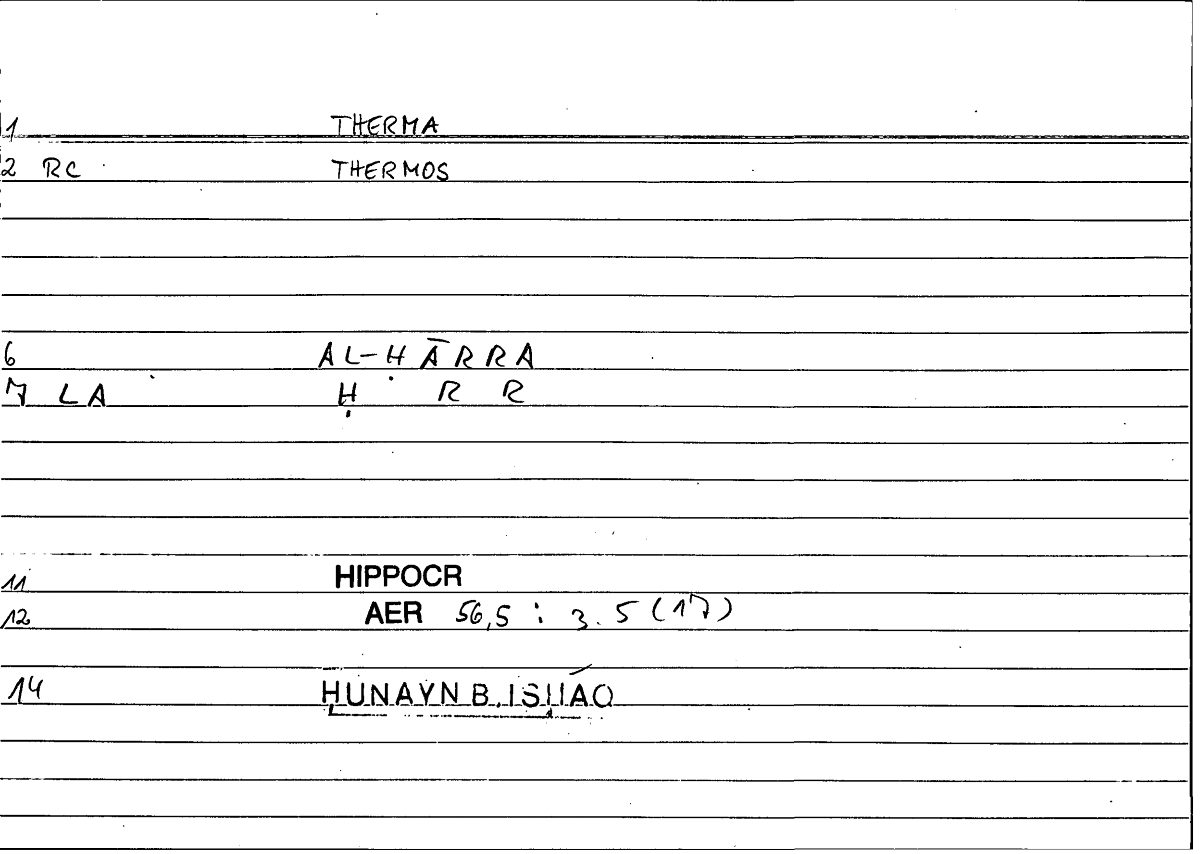 1 THERMA
2 RC THERMOS
6 AL-HĀRRA
7 LA Ḥ R R
11 HIPPOCR
12 AER 56,5 : 3.5 (17)
14 ḤUNAYN B. ISḤĀQ